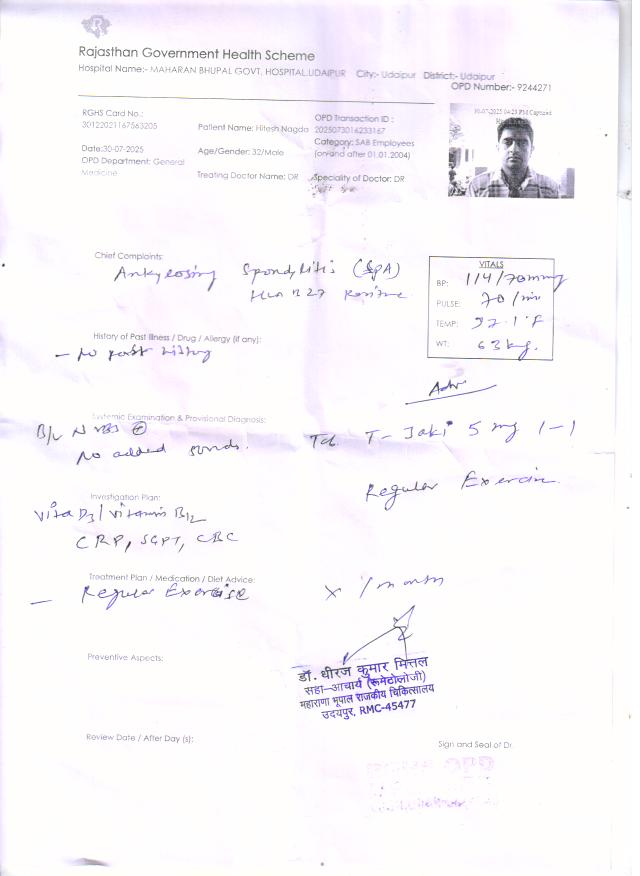 Rajasthan Government Health Scheme
Hospital Name:- MAHARAN BHUPAL GOVT. HOSPITAL,UDAIPUR City:- Udaipur District:- Udaipur
OPD Number:- 9244271
30-07-2025 04:23 PM Captured
RGHS Card No.:
30122021167563205
Date:30-07-2025
OPD Department: General
Medicine
Patient Name: Hitesh Nagda
Age/Gender: 32/Male
Treating Doctor Name: DR
OPD Transaction ID :
2025073016233167
Category: SAB Employees
(on and after 01.01.2004)
Speciality of Doctor: DR
Chief Complaints:
Ankylosing Spondylitis (SPA)
HLA B27 Positive
VITALS
BP: 114/70mmg
PULSE: 70/min
TEMP: 97.1°F
WT: 63 kg.
History of Past Illness / Drug / Allergy (if any):
- No past history
Adv
Systemic Examination & Provisional Diagnosis:
B/L N VBS ⊕
No added sounds.
Tab T-Jaki 5 mg 1-1
Regular Exercise
Investigation Plan:
Vita D3/Vitamin B12
CRP, SGPT, CBC
Treatment Plan / Medication / Diet Advice:
- Regular Exercise
x 1 month
Preventive Aspects:
डॉ. धीरज कुमार मित्तल
सहा-आचार्य (रूमेटोलोजी)
महाराणा भूपाल राजकीय चिकित्सालय
उदयपुर, RMC-45477
Review Date / After Day (s):
Sign and Seal of Dr.